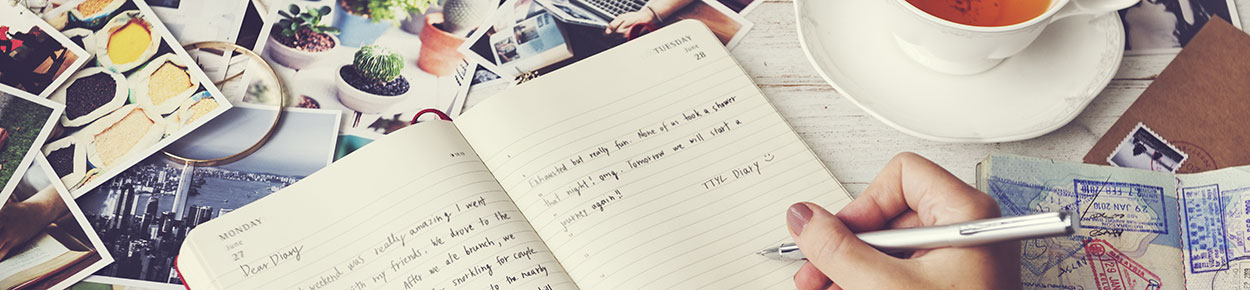 MONDAY
June
27
Dear Diary
weekend was really amazing I went
with my friends. We drove to the
After we ate brunch, we
snorkling for couple
to the nearby
TUESDAY
June
28
Exhausted but really fun. None of us took a shower
that night! omg. Tomorrow we will start a
journey again!!
TTYL Diary
29 JAN 2010